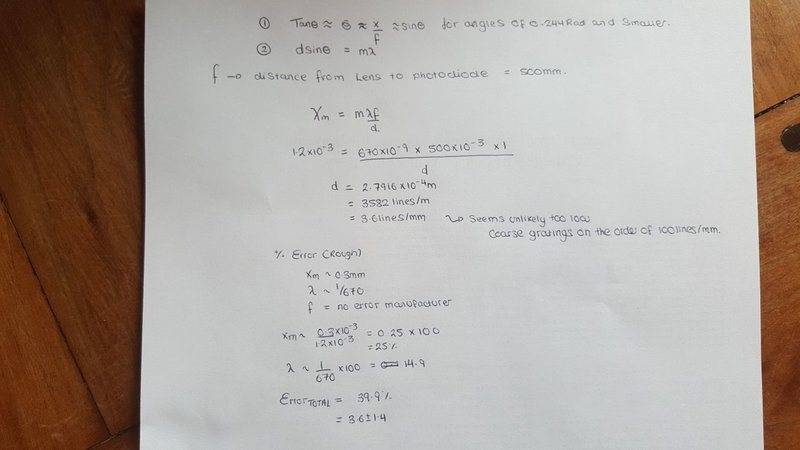 ① Tanθ ≈ θ ≈ x/f ≈ sinθ for angles of 0.244Rad and smaller.
② dsinθ = mλ
f → distance from Lens to photodiode = 500mm.
Xm = mλf/d.
1.2×10⁻³ = 670×10⁻⁹ × 500×10⁻³ × 1 / d
d = 2.7916×10⁻⁴m
= 3582 lines/m
= 3.6lines/mm ↝ Seems unlikely too low
Coarse gratings on the order of 100lines/mm.
% Error (Rough)
Xm ~ 0.3mm
λ ~ 1/670
f = no error manufacturer
Xm ~ 0.3×10⁻³/1.2×10⁻³ = 0.25 × 100
= 25%
λ ~ 1/670 ×100 = 14.9
Error TOTAL = 39.9%
= 3.6±1.4